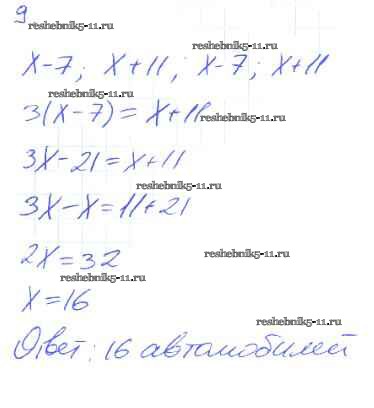 9
reshebnik5-11.ru
reshebnik5-11.ru
x-7; x+11; x-7; x+11
reshebnik5-11.ru
3(x-7)=x+11
reshebnik5-11.ru
3x-21=x+11
reshebnik5-11.ru
3x-x=11+21
2x=32
reshebnik5-11.ru
reshebnik5-11.ru
x=16
reshebnik5-11.ru
Ответ: 16 автомобилей